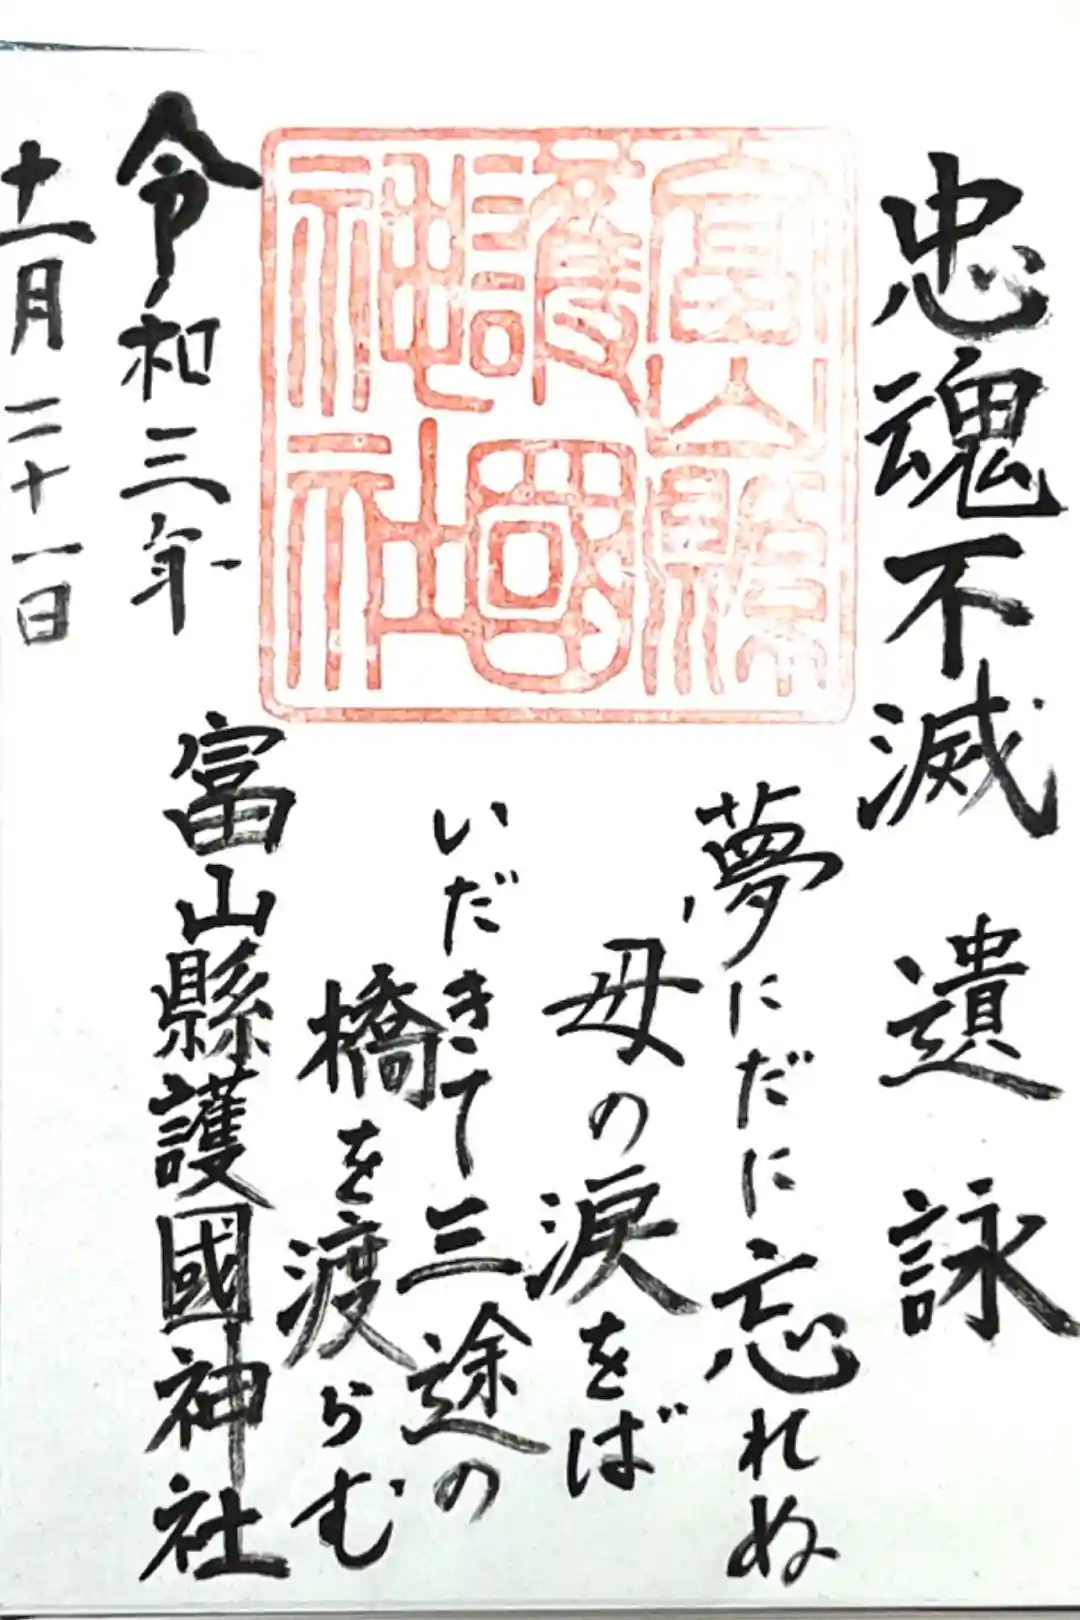 忠魂不滅 遺詠
夢にだに忘れぬ
母の涙をば
いだきて三途の
橋を渡らむ
富山縣
護國
神社
令和三年
十一月二十一日
富山縣護國神社